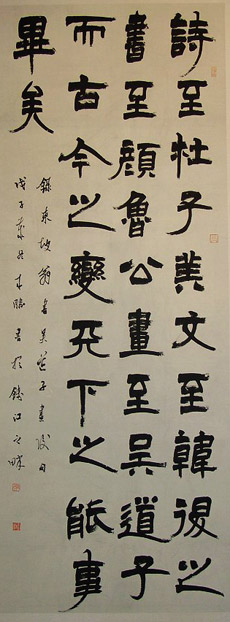 詩至杜子美文至韓退之
書至顏魯公畫至吳道子
而古今之變天下之能事
畢矣
錄東坡翁書吳道子畫後句
戊子書於錢江之畔